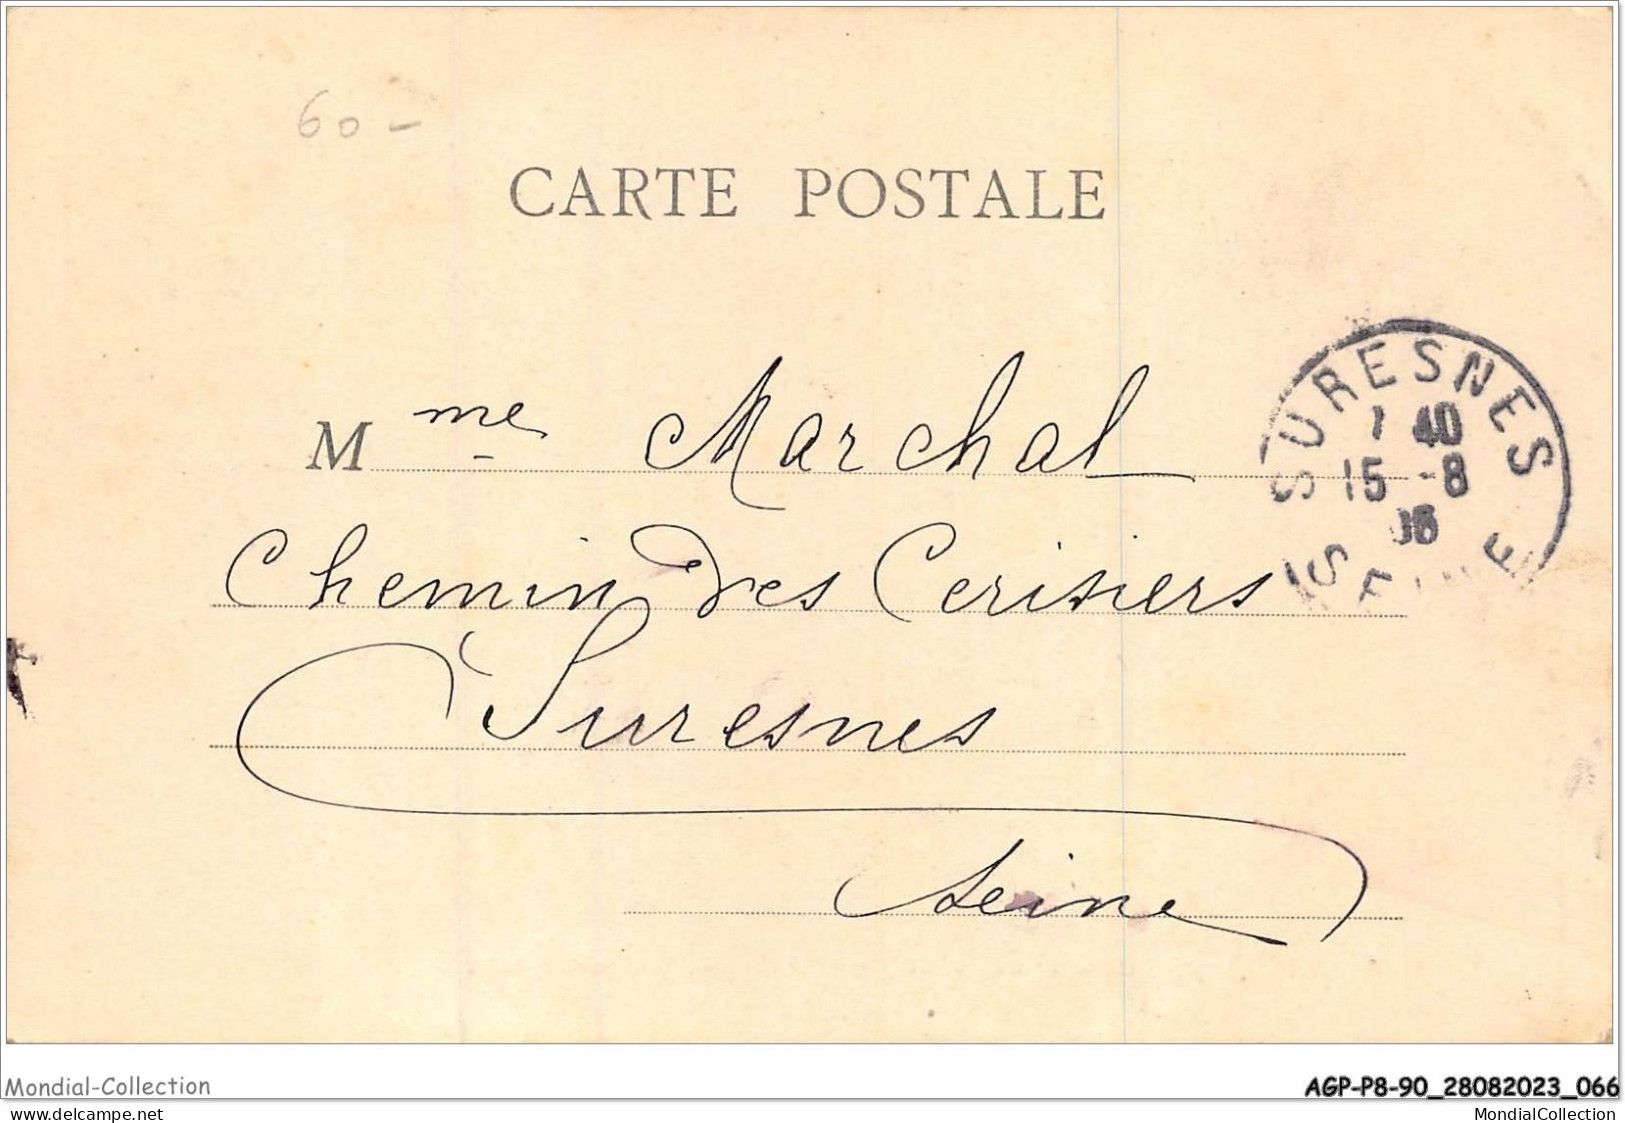 60 -
CARTE POSTALE
Mme Marchal
Chemin des Cerisiers
Suresnes
Seine
SURESNES
1 40
15 -8
06
SEINE
Mondial-Collection
AGP-P8-90_28082023_066
www.delcampe.net
MondialCollection